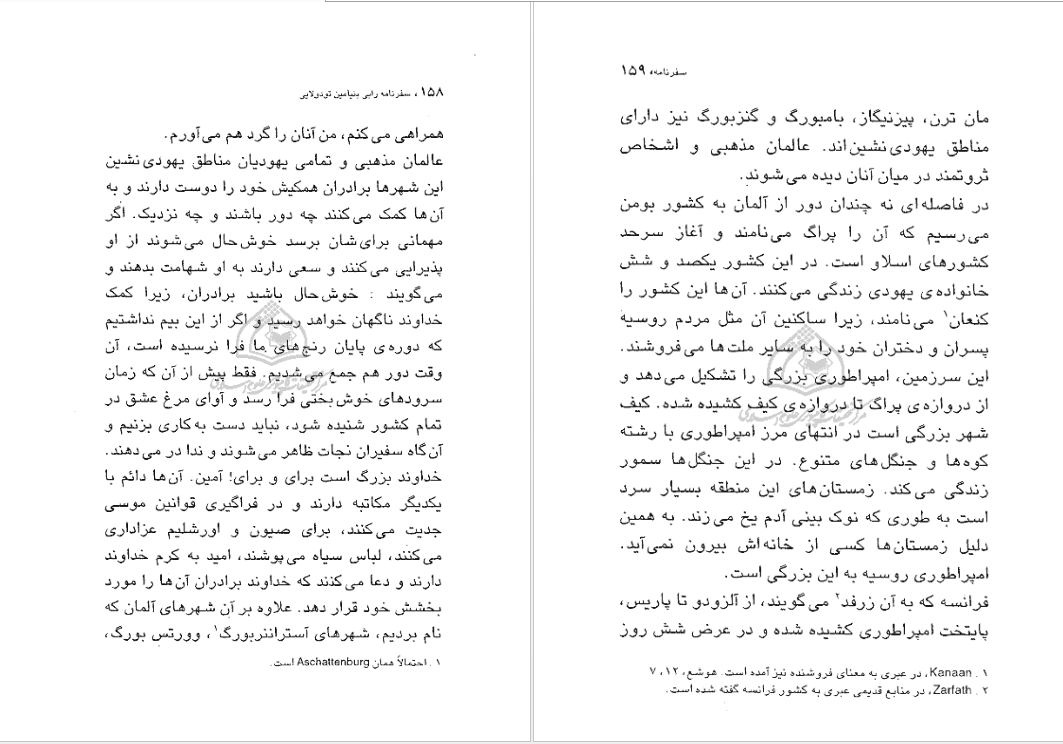 ۱۵۸، سفرنامه رابی بنیامین تودولایی
همراهی می‌کنم، من آنان را گرد هم می‌آورم.
عالمان مذهبی و تمامی یهودیان مناطق یهودی‌نشین
این شهرها برادران همکیش خود را دوست دارند و به
آن‌ها کمک می‌کنند چه دور باشند و چه نزدیک. اگر
مهمانی برای‌شان برسد خوش‌حال می‌شوند از او
پذیرایی می‌کنند و سعی دارند به او شهامت بدهند و
می‌گویند : خوش‌حال باشید برادران، زیرا کمک
خداوند ناگهان خواهد رسید و اگر از این بیم نداشتیم
که دوره‌ی پایان رنج‌های ما فرا نرسیده است، آن
وقت دور هم جمع می‌شدیم. فقط پیش از آن که زمان
سرودهای خوش‌بختی فرا رسد و آوای مرغ عشق در
تمام کشور شنیده شود، نباید دست به‌کاری بزنیم و
آن‌گاه سفیران نجات ظاهر می‌شوند و ندا در می‌دهند.
خداوند بزرگ است برای و برای! آمین. آن‌ها دائم با
یکدیگر مکاتبه دارند و در فراگیری قوانین موسی
جدیت می‌کنند، برای صیون و اورشلیم عزاداری
می‌کنند، لباس سیاه می‌پوشند، امید به کرم خداوند
دارند و دعا می‌کنند که خداوند برادران آن‌ها را مورد
بخشش خود قرار دهد. علاوه بر آن شهرهای آلمان که
نام بردیم، شهرهای آستراننربورگ۱، وورتس بورگ،
۱ . احتمالاً همان Aschattenburg است.
سفرنامه، ۱۵۹
مان ترن، پیزنیگاز، بامبورگ و گنزبورگ نیز دارای
مناطق یهودی‌نشین‌اند. عالمان مذهبی و اشخاص
ثروتمند در میان آنان دیده می‌شوند.
در فاصله‌ای نه چندان دور از آلمان به کشور بومن
می‌رسیم که آن را پراگ می‌نامند و آغاز سرحد
کشورهای اسلاو است. در این کشور یکصد و شش
خانواده‌ی یهودی زندگی می‌کنند. آن‌ها این کشور را
کنعان۱ می‌نامند، زیرا ساکنین آن مثل مردم روسیه
پسران و دختران خود را به سایر ملت‌ها می‌فروشند.
این سرزمین، امپراطوری بزرگی را تشکیل می‌دهد و
از دروازه‌ی پراگ تا دروازه‌ی کیف کشیده شده. کیف
شهر بزرگی است در انتهای مرز امپراطوری با رشته
کوه‌ها و جنگل‌های متنوع. در این جنگل‌ها سمور
زندگی می‌کند. زمستان‌های این منطقه بسیار سرد
است به طوری که نوک بینی آدم یخ می‌زند. به همین
دلیل زمستان‌ها کسی از خانه‌اش بیرون نمی‌آید.
امپراطوری روسیه به این بزرگی است.
فرانسه که به آن زرفد۲ می‌گویند، از آلزودو تا پاریس،
پایتخت امپراطوری کشیده شده و در عرض شش روز
۱ . Kanaan، در عبری به معنای فروشنده نیز آمده است. هوشع، ۱۲، ۷
۲ . Zarfath، در منابع قدیمی عبری به کشور فرانسه گفته شده است.